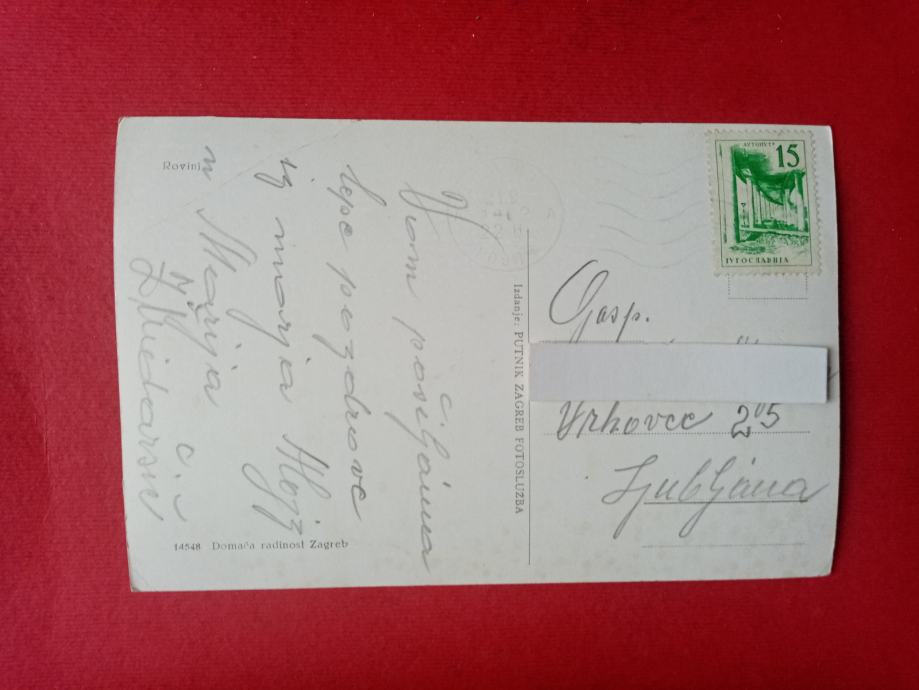 Rovinj
Vam pošiljáma
lepe pozdrave
iz morja Alojz
n Marija
14548 Domaća radinost Zagreb
Izdanje: PUTNIK ZAGREB FOTOSLUŽBA
АУТОПУТ
15
ЈУГОСЛАВИЈА
Gosp.
Vrhovce 205
Ljubljana